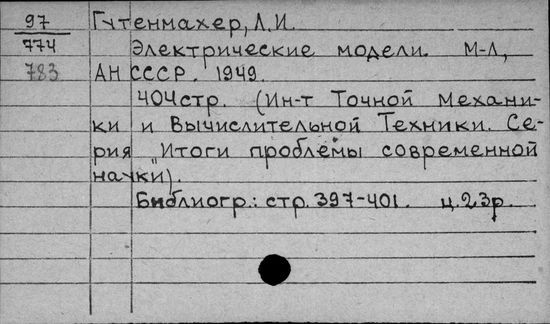 97 Гутенмахер, Л.И.
774 Электрические модели. М-Л,
783 АН СССР. 1949.
404стр. (Ин-т Точной механи-
ки и Вычислительной Техники. Се-
рия "Итоги проблемы современной
науки).
Библиогр.: стр. 397-401. ц. 23р.